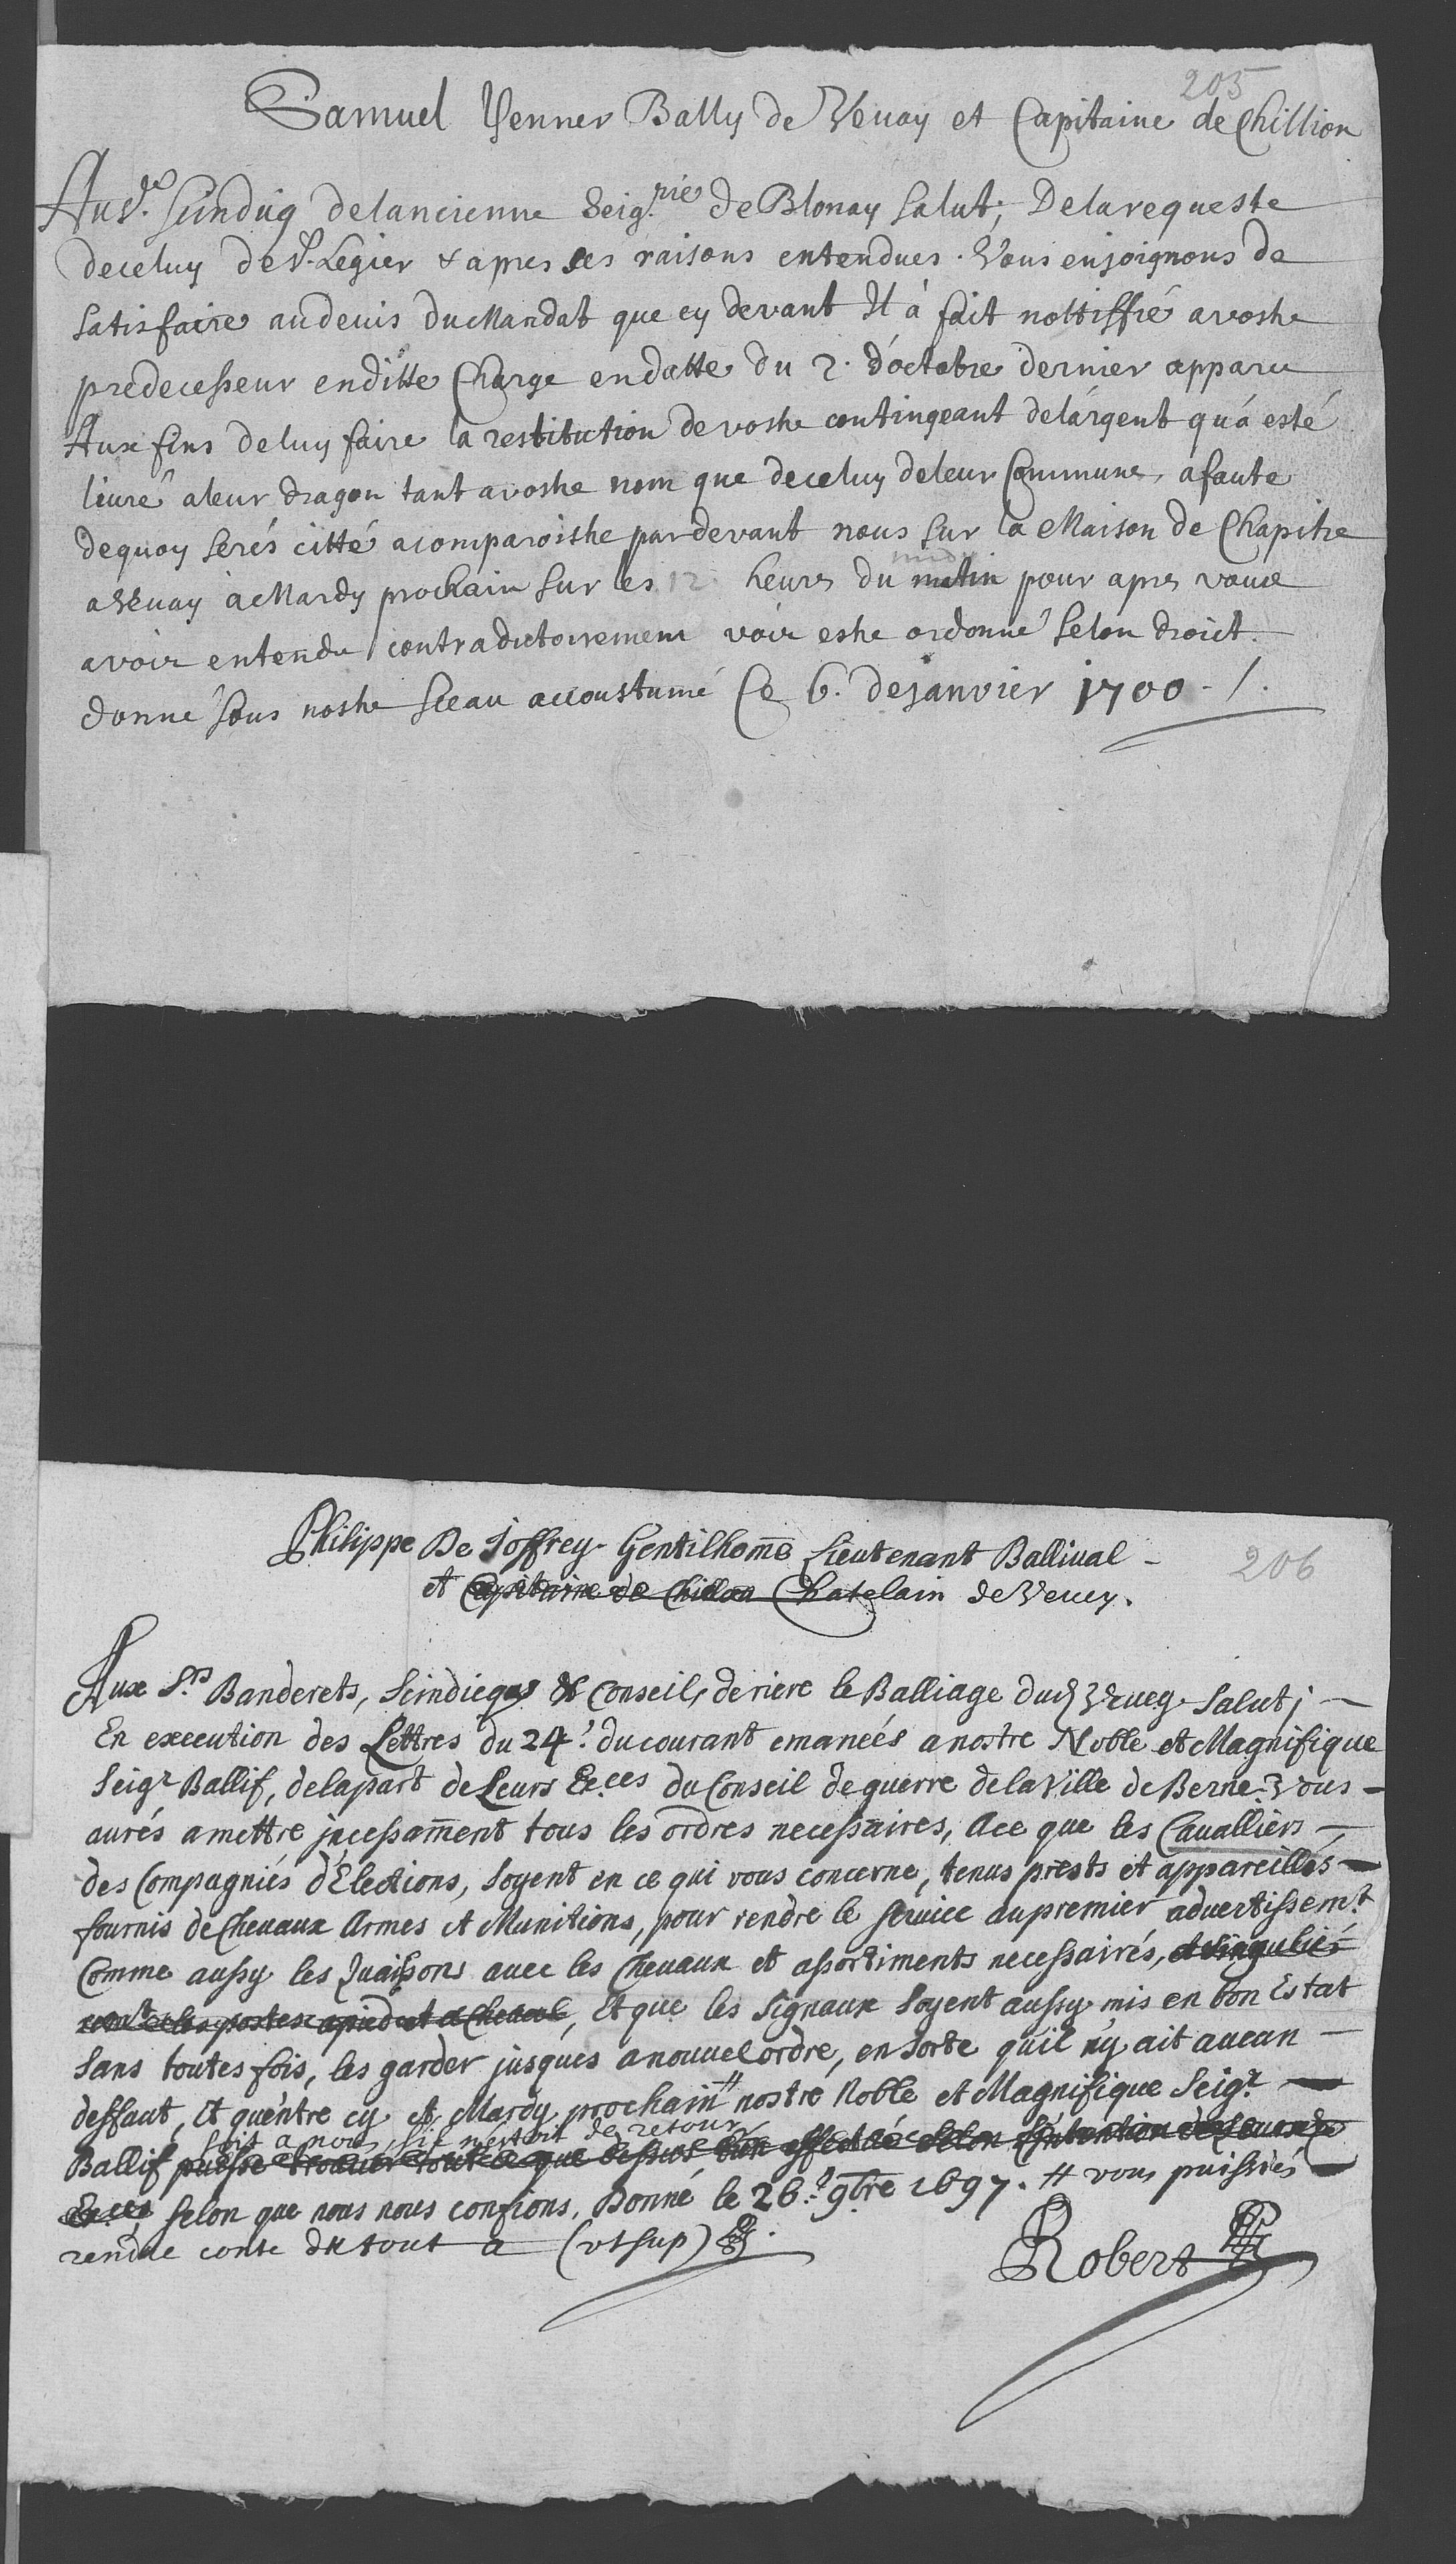 205
Samuel Jenner Bally de Vevay et Capitaine de Chillion
Au Sr. Sindiq delancienne Seig.rie de Blonay Salut; Delarequeste
deceluy de St. Legier & apres ses raisons entendues. Vous enjoignons de
Satisfaire audevis du Mandat que cy devant Il à fait nottiffié avostre
predecesseur enditte Charge endatte du 2. d'octobre dernier apparu
Aux fins deluy faire la restitution de vostre contingeant delárgent qu'á esté
livré aleur dragon tant avostre nom que deceluy deleur Commune, afaute
dequoy Serés citté acomparoistre par devant nous Sur la Maison de Chapitre
a Vevay à Mardy prochain Sur les 12 heures du matin midy pour apres vous
avoir entendu contradictoirement voir estre ordonné Selon droict.
donné Sous nostre Sceau accoustumé Ce 6. dejanvier 1700 - /.
206
Philippe De Joffrey Gentilhome Lieutenant Ballival -
et Capitaine de Chillon Chatelain de Vevey.
Aux S.rs Banderets, Scindicqs & Conseils, deriere le Balliage dud. Vevey Salut; -
En execution des Lettres du 24.e ducourant emaneés a nostre Noble et Magnifique
Seigr Ballif, delapart de Leurs Ex.ces du Conseil de guerre delaville de Berne. Vous -
aurés a mettre jncessament tous les ordres necessaires, Ace que les Cavalliers -
des Compagniés d'Elections, Soyent en ce qui vous concerne, tenus prests et appareillés -
fournis de Chevaux Armes et Munitions, pour rendre le service aupremier advertissem.t
Comme aussy les Quaissons avec les Chevaux et assortiments necessairés, et singulié-
rem.t les postes apied et a Cheval, Et que les Signaux Soyent aussy mis en bon Estat
Sans toutes fois, les garder jusques a nouvel ordre, en Sorte qu'il n'y ait aucun -
deffaut, Et qu'entre cy et Mardy prochain # nostre Noble et Magnifique Seigr -
soit a nous, s'il n'estoit de retour,
Ballif puisse trouver tout ce que dessus bien effectué Selon L'intention de Leursd.
Ex.ces selon que nous nous confions, Donné le 26.e 9bre 1697. # vous puissiés -
rendre conte du tout a (ut sup)
Robert